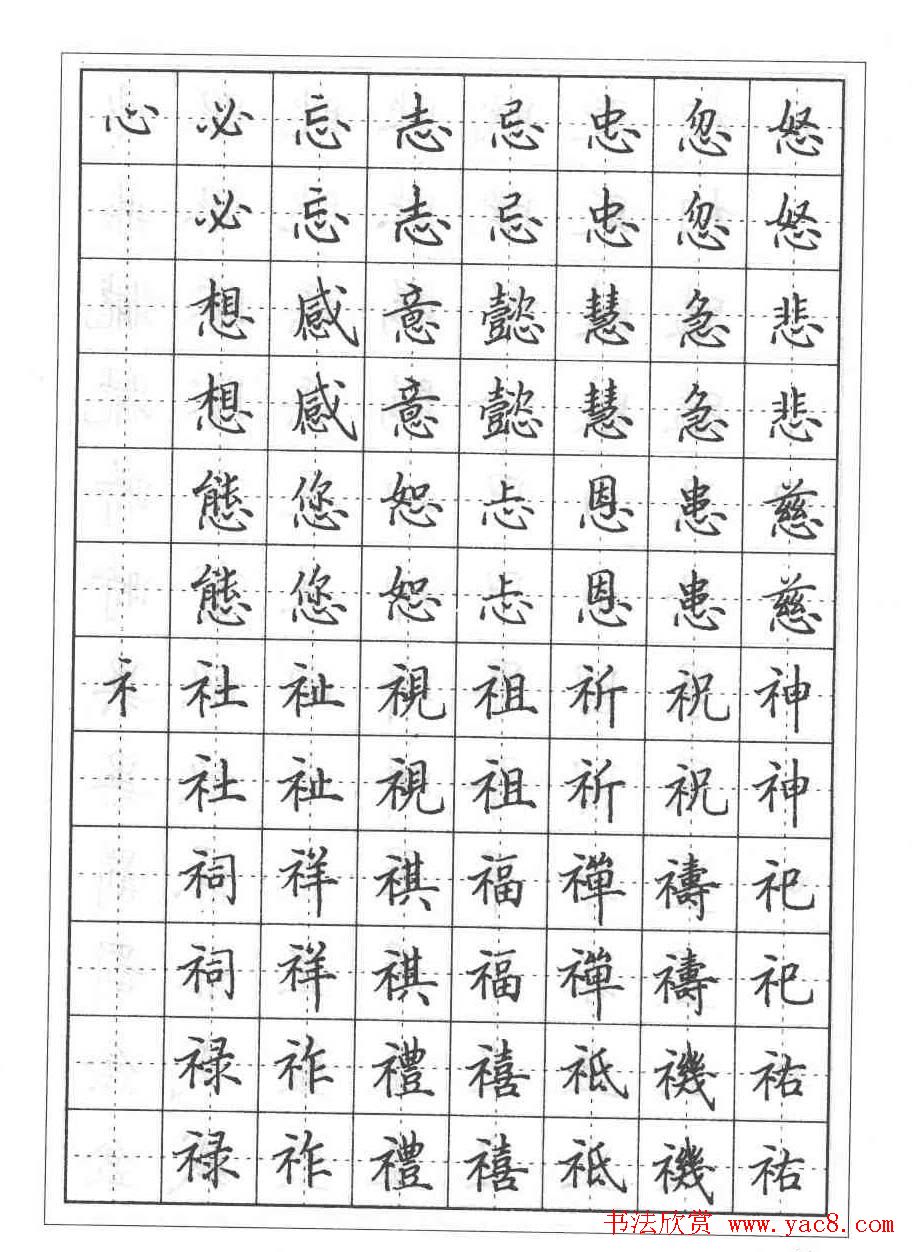 心必忘志忌忠忽怒
必忘志忌忠忽怒
想感意懿慧急悲
想感意懿慧急悲
態您恕忐恩患慈
態您恕忐恩患慈
礻社祉視祖祈祝神
社祉視祖祈祝神
祠祥祺福禪禱祀
祠祥祺福禪禱祀
禄祚禮禧祗禨祐
禄祚禮禧祗禨祐
书法欣赏 www.yac8.com